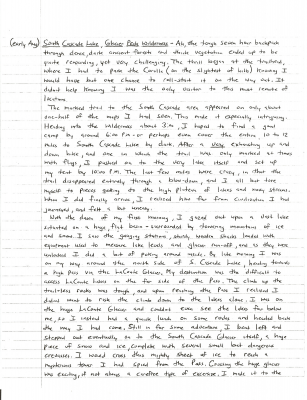 (early Aug) South Cascade Lake, Glacier Peak Wilderness - Ah, the long seven hour backpack
through dense, giant ancient forests and shrub vegetation ended up to be
quite rewarding, yet very challenging. The thrill began at the trailhead,
where I had to park the Corolla (on the slightest of hills) knowing I
would have but one chance to roll-start it on the way out. It
didn't help knowing I was the only visitor to this most remote of
locations.
The marked trail to the South Cascade area appeared on only about
one-half of the maps I had seen. This made it especially intriguing.
Heading into the wilderness about 3 p.m., I hoped to find a good
camp by around 6 to 7 p.m. or perhaps even cover the entire 10 to 12
miles to South Cascade Lake by dark. After a very exhausting up and
down hike, and one in where the trail was only marked at times
with flags, I pushed on to the very lake itself and set up
my tent by 10:00 P.M. The last few miles were crazy, in that the
trail disappeared entirely through a blow-down, and I all but tore
myself to pieces getting to the high plateau of lakes and many streams.
When I did finally arrive, I realized how far from civilization I had
journeyed, and felt a bit uneasy.
With the dawn of my first morning, I gazed out upon a dust lake
situated on a huge, flat basin surrounded by towering mountains of ice
and snow. I saw the gauging stations, shanty, wooden shacks lined with
equipment used to measure lake levels and glacier run-off, and as they were
unlocked I did a bit of poking around inside. By late morning I was
on my way around the north side of S. Cascade Lake, heading towards
a high pass via the LeConte Glacier. My destination was the difficult to
access LeConte Lakes on the far side of the Pass. The climb up the
trail-less rocks was tough and upon reaching the Pass I realized I
did not want to risk the climb down to the lakes alone. I was on
the huge LeConte Glacier and couldn't even see the lakes far below
me, so I instead had a quick lunch on some rocks and headed back
the way I had come. Still in for some adventure, I headed left and
stepped out eventually on to the South Cascade Glacier itself, a huge
piece of snow and ice, complete with several small but dangerous
crevasses. I would cross this mighty sheet of ice to reach a
mysterious tower I had spied from the Pass. Crossing the huge glacier
was exciting, if not always a carefree type of exercise. I made it to the